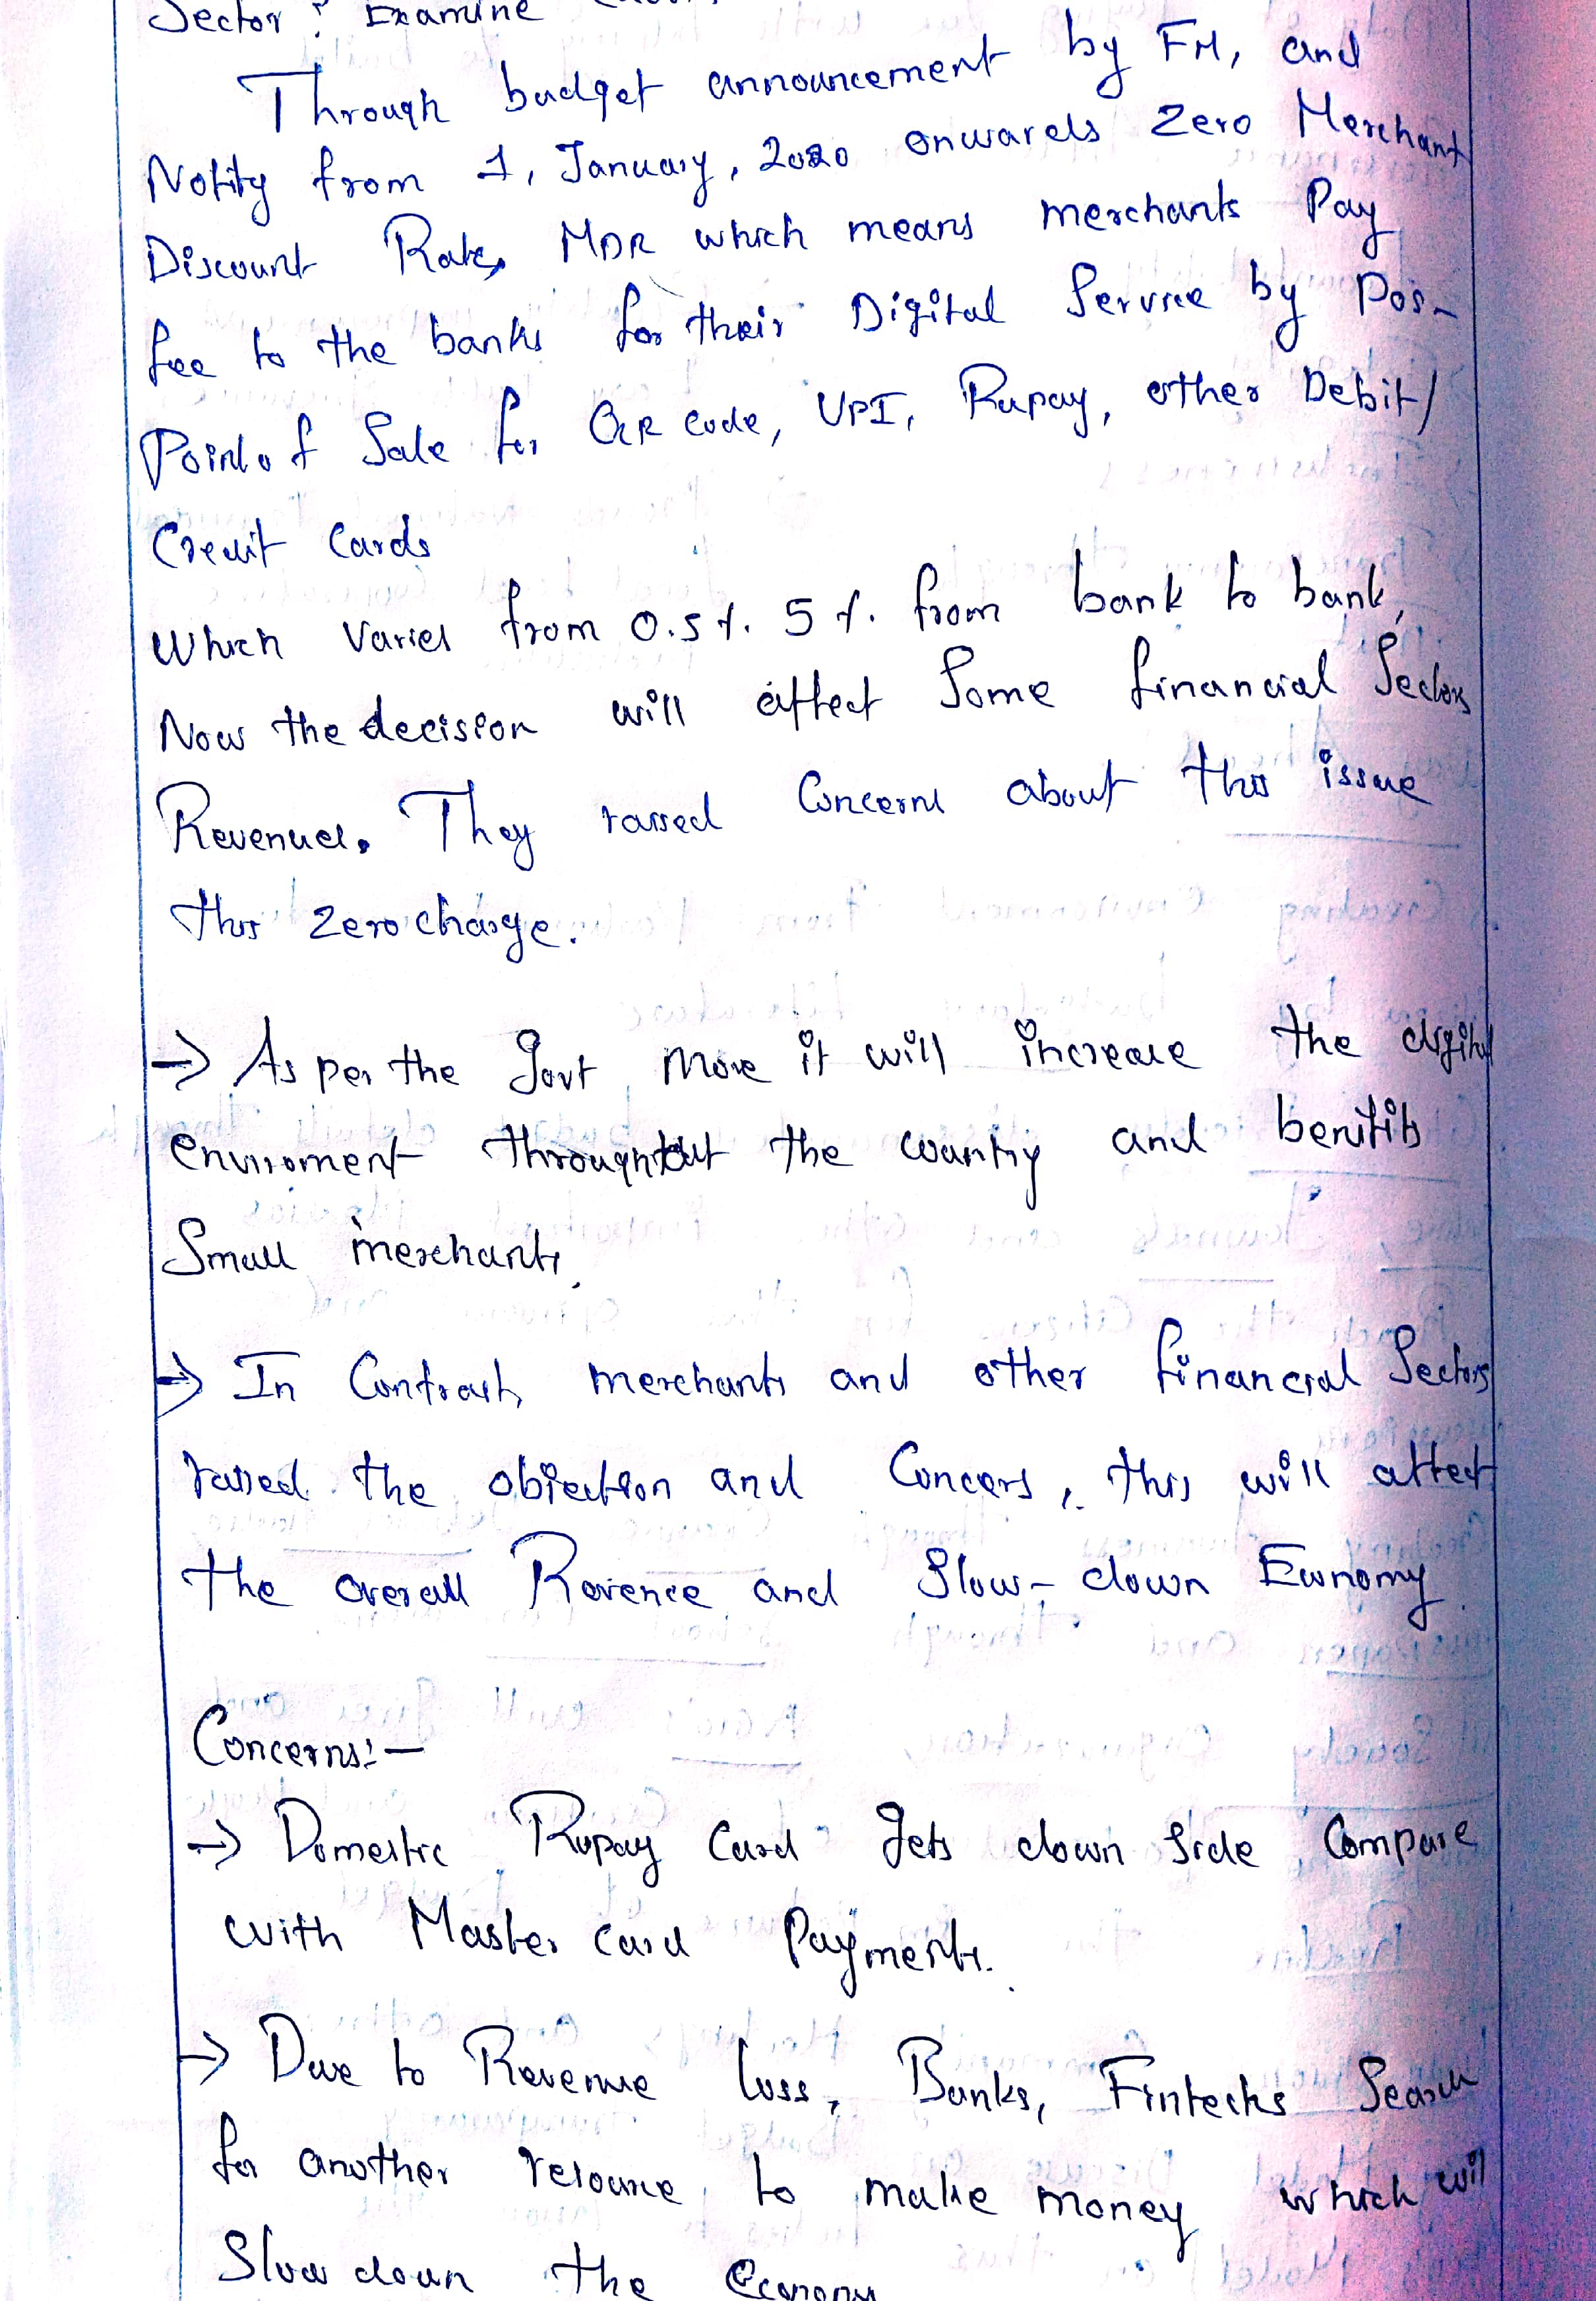 Sector? Examine
Through budget announcement by FM, and
Notity from 1, January, 2020 onwards Zero Merchant
Discount Rate, MDR which means merchants Pay
fee to the banks for their Digital Service by Pos-
Point of Sale for QR code, UPI, Rupay, other Debit/
Credit Cards
which varies from 0.5%. 5%. from bank to bank,
Now the decision will affect Some financial Sectors
Revenues. They raised Concerns about this issue
this Zero charge.
→ As per the Govt move it will increase the digital
enviroment throughout the country and benitits
Small merchants.
→ In Contrast, merchants and other financial Sectors
raised the objection and Concers, this will affect
the overall Revence and Slow-down Economy.
Concerns:-
→ Domestic Rupay Card gets down side Compare
with Master card Payments.
→ Due to Revenue loss, Banks, Fintechs Search
for another resource to make money which will
Slow down the Economy